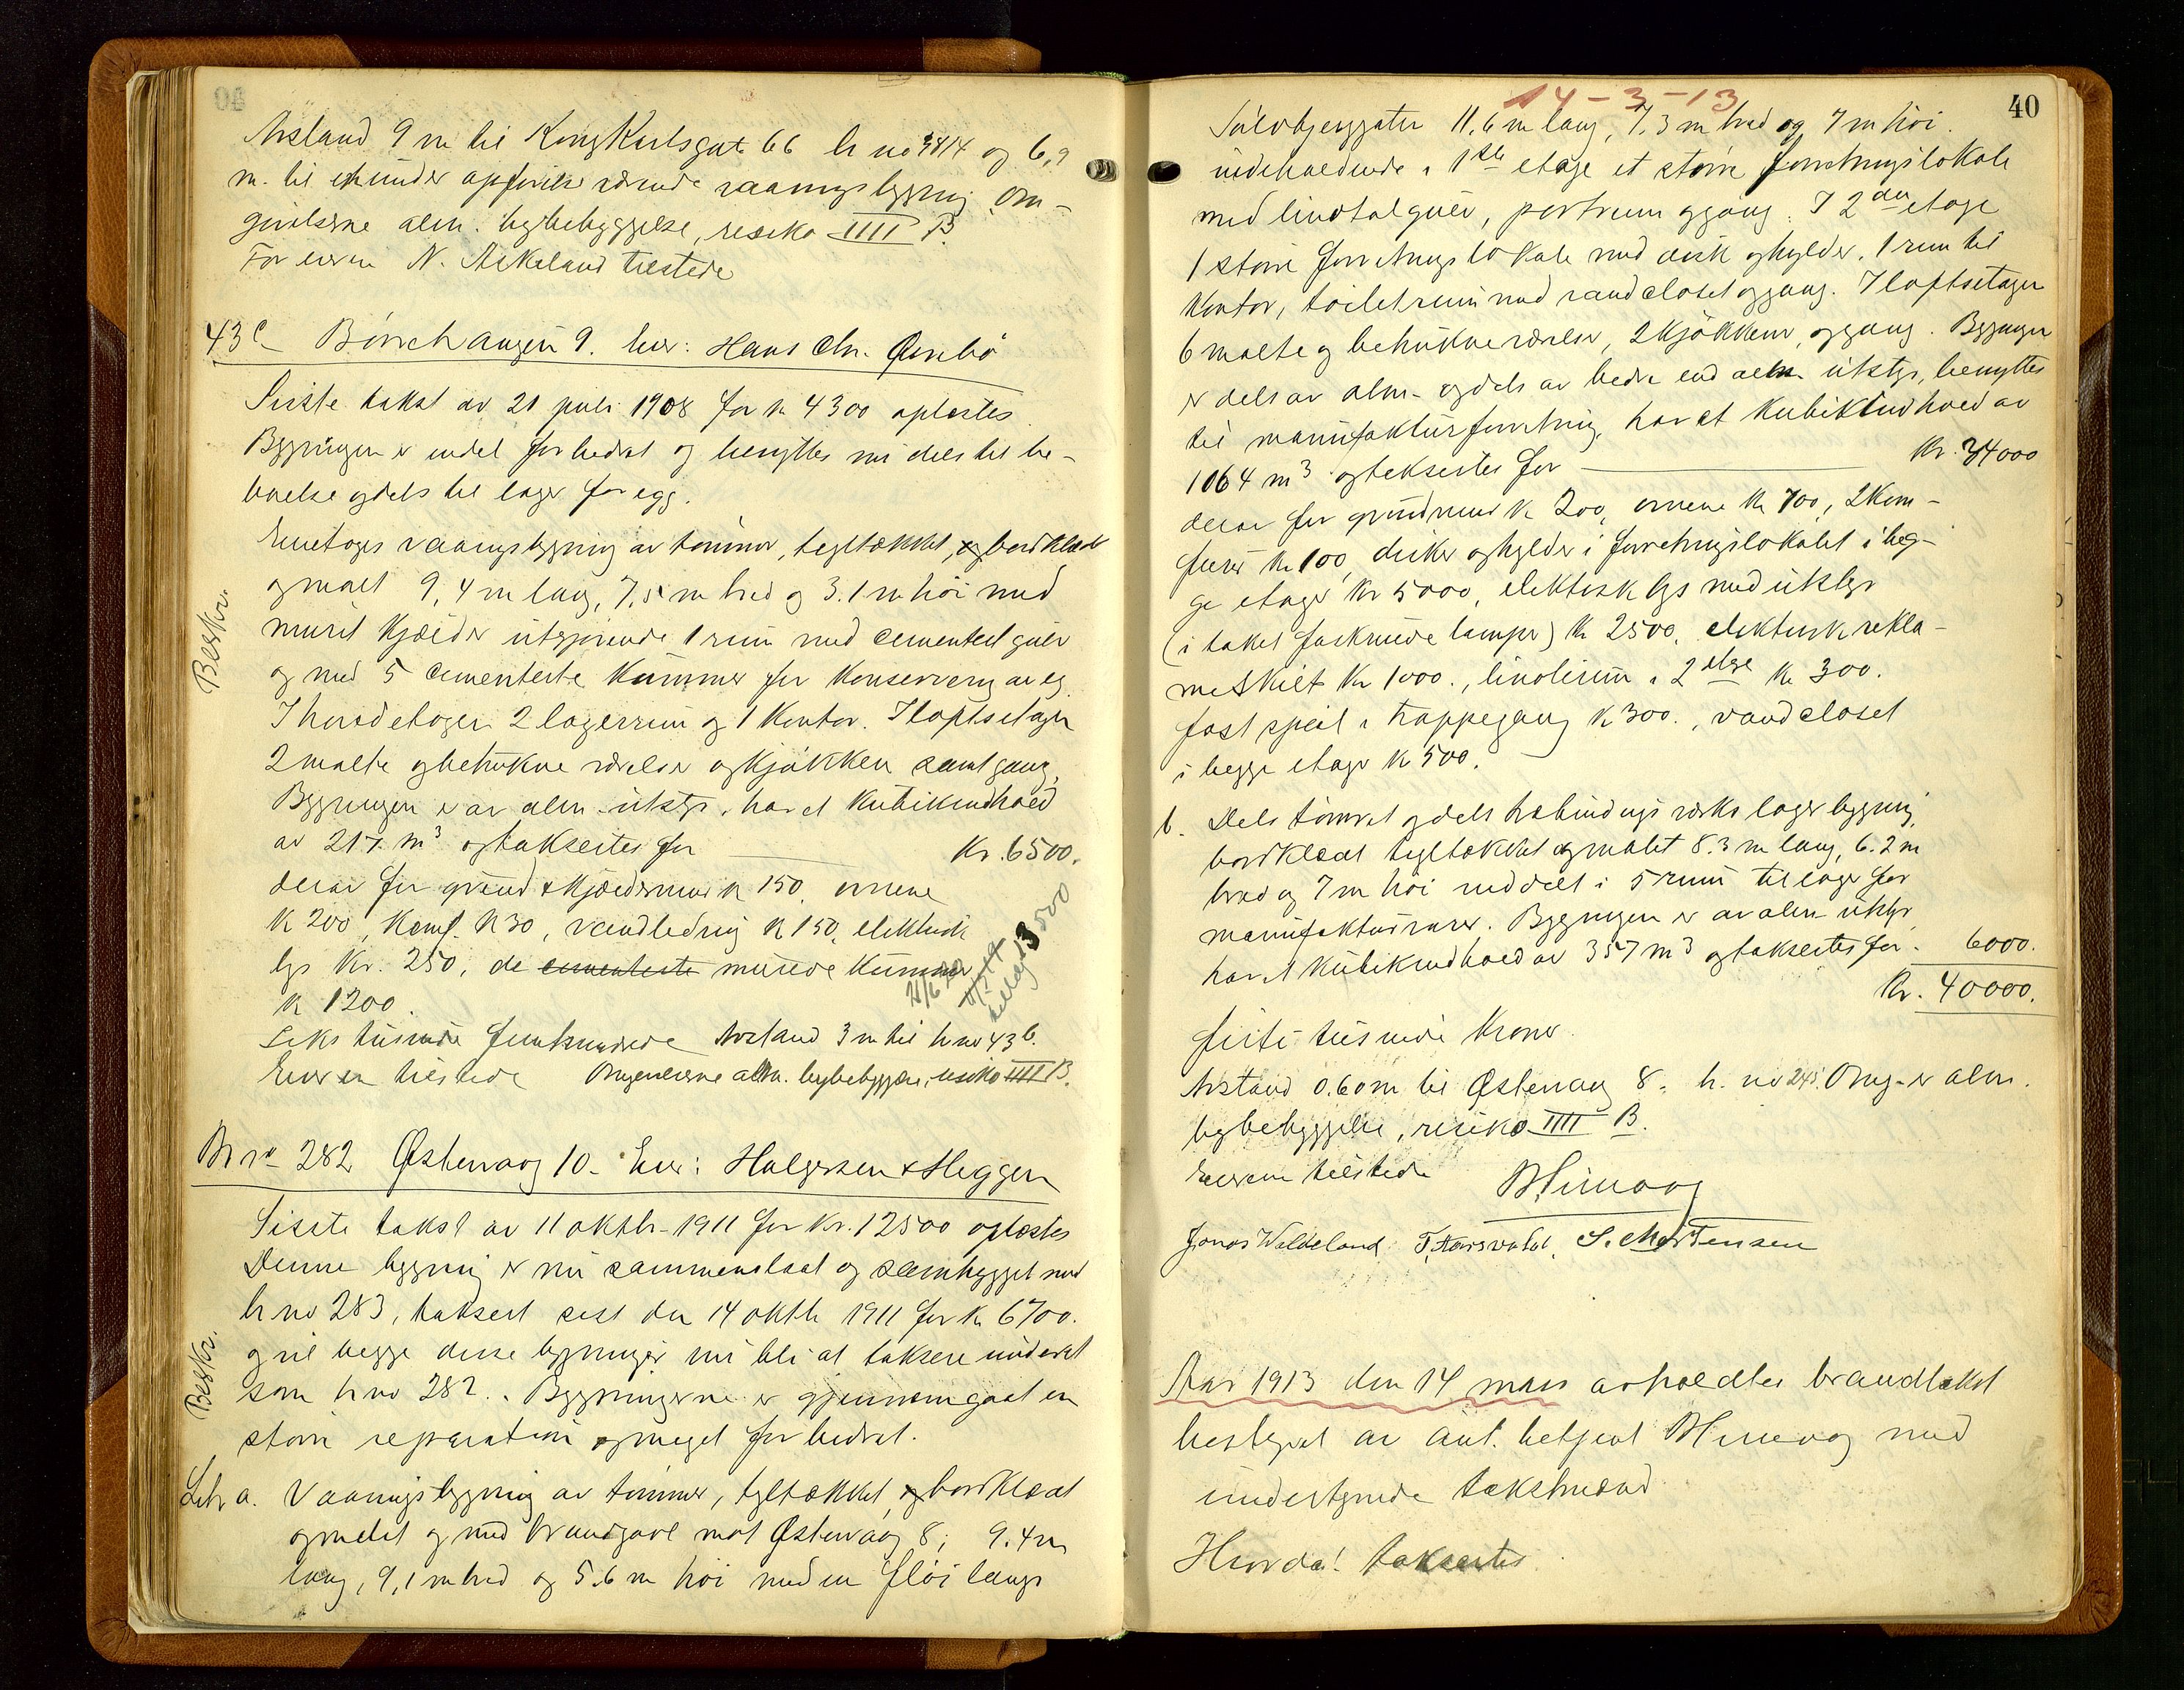 Avstand 9 m til Kong Karlsgate 66 br no 3814 og 6,9
m. til en under opførelse værende vaaningsbygning. Om-
givelserne alm. bybebyggelse, risiko IIII B.
For eieren N. Askeland tilstede
43c Börehaugen 9. Eier: Hans Chr.
Siste takst av 21 juli 1908 for kr 4300 oplæstes.
Bygningen er endel forbedret og benyttes nu dels til be-
boelse og dels til lager for egg.
Beskr.
Enetages vaaningsbygning av tømmer, tegltækket, bordklædt
og malt 9,4 m lang, 7,5 m bred og 3.1 m høi med
muret kjælder utgjørende 1 rum med cementert gulv
og med 5 cementerte kummer for konservering av eg.
I hovedetagen 2 lagerrum og 1 kontor. I loftsetagen
2 malte og betrukne værelser og kjøkken samt gang.
Bygningen er av alm. utstyr, har et kubikindhold
av 217 m3 og takseres for Kr. 6500.
derav for grund & kjældermur kr 150, ovnene
kr 200, komf. kr 30, vandledning kr 150, elektrisk
lys kr. 250, de cementerte murede kummer
kr 1200.
21/6 20
13000
Seks tusinde femhundrede Avstand 3 m til br no 43b.
Eieren tilstede Omgivelserne alm. bybebyggelse, risiko IIII B.
Br no 282 Østervaag 10. Eier: Halgersen & Heggen
Siste takst av 11 oktbr. 1911 for kr. 12500 oplæstes
Denne bygning er nu sammenslaat og sambygget med
br no 283, taksert sist den 14 oktbr 1911 for kr 6700.
og vil begge disse bygninger nu bli at taksere under et
som br no 282. Bygningerne er gjennemgaat en
Beskr.
større reparation og meget forbedret.
Litr a. Vaaningsbygning av tømmer, tegltækket, bordklædt
og malet og med brandgavl mot Østervaag 8; 9.4 m
lang, 9,1 m bred og 5.6 m høi med en fløi langs
14-3-13
40
Sølvberggaten 11.6 m lang, 7.3 m bred og 7 m høi.
indeholdende i 1ste etage et større forretningslokale
med linotolgulv, portrum og gang. I 2den etage
1 større forretningslokale med disk og hylder, 1 rum til
kontor, toiletrum med vandcloset og gang. I loftsetagen
6 malte og betrukne værelser, 2 kjøkkener, og gang. Bygningen
er dels av alm. og dels av bedre end alm. utstyr, benyttes
til manufakturforretning, har et kubikindhold av
1064 m3 og takseres for Kr. 34000
derav for grundmur kr 200, ovnene kr 700, 2 kom-
furer kr 100, disker og hylder i forretningslokalet i beg-
ge etager kr 5000, elektrisk lys med utstyr
(i taket faskruede lamper) kr 2500, elektrisk rekla-
meskilt kr 1000., linoleum i 2 etage kr 300.
fast speil i trappegang kr 300., vandcloset
i begge etager kr 500.
b. Dels tømret og dels trebindingsverks lagerbygning,
bordklædt tegltækket og malet 8.3 m lang, 6.2 m
bred og 7 m høi inddelt i 5 rum til lager for
manufakturvarer. Bygningen er av alm. utstyr,
har et kubikindhold av 357 m3 og takseres for 6000.
Kr. 40000.
Firti tusinde kroner.
Avstand 0.60 m til Østervaag 8. br. no 245. Omg. er alm.
bybebyggelse, risiko IIII B.
Eierene tilstede
Jonas Waldeland. S. Mortensen
Aar 1913 den 14 mars avholdtes brandtakst
bestyret av aut. betjent med
undertegnede takstmænd
Hvorda! takseres